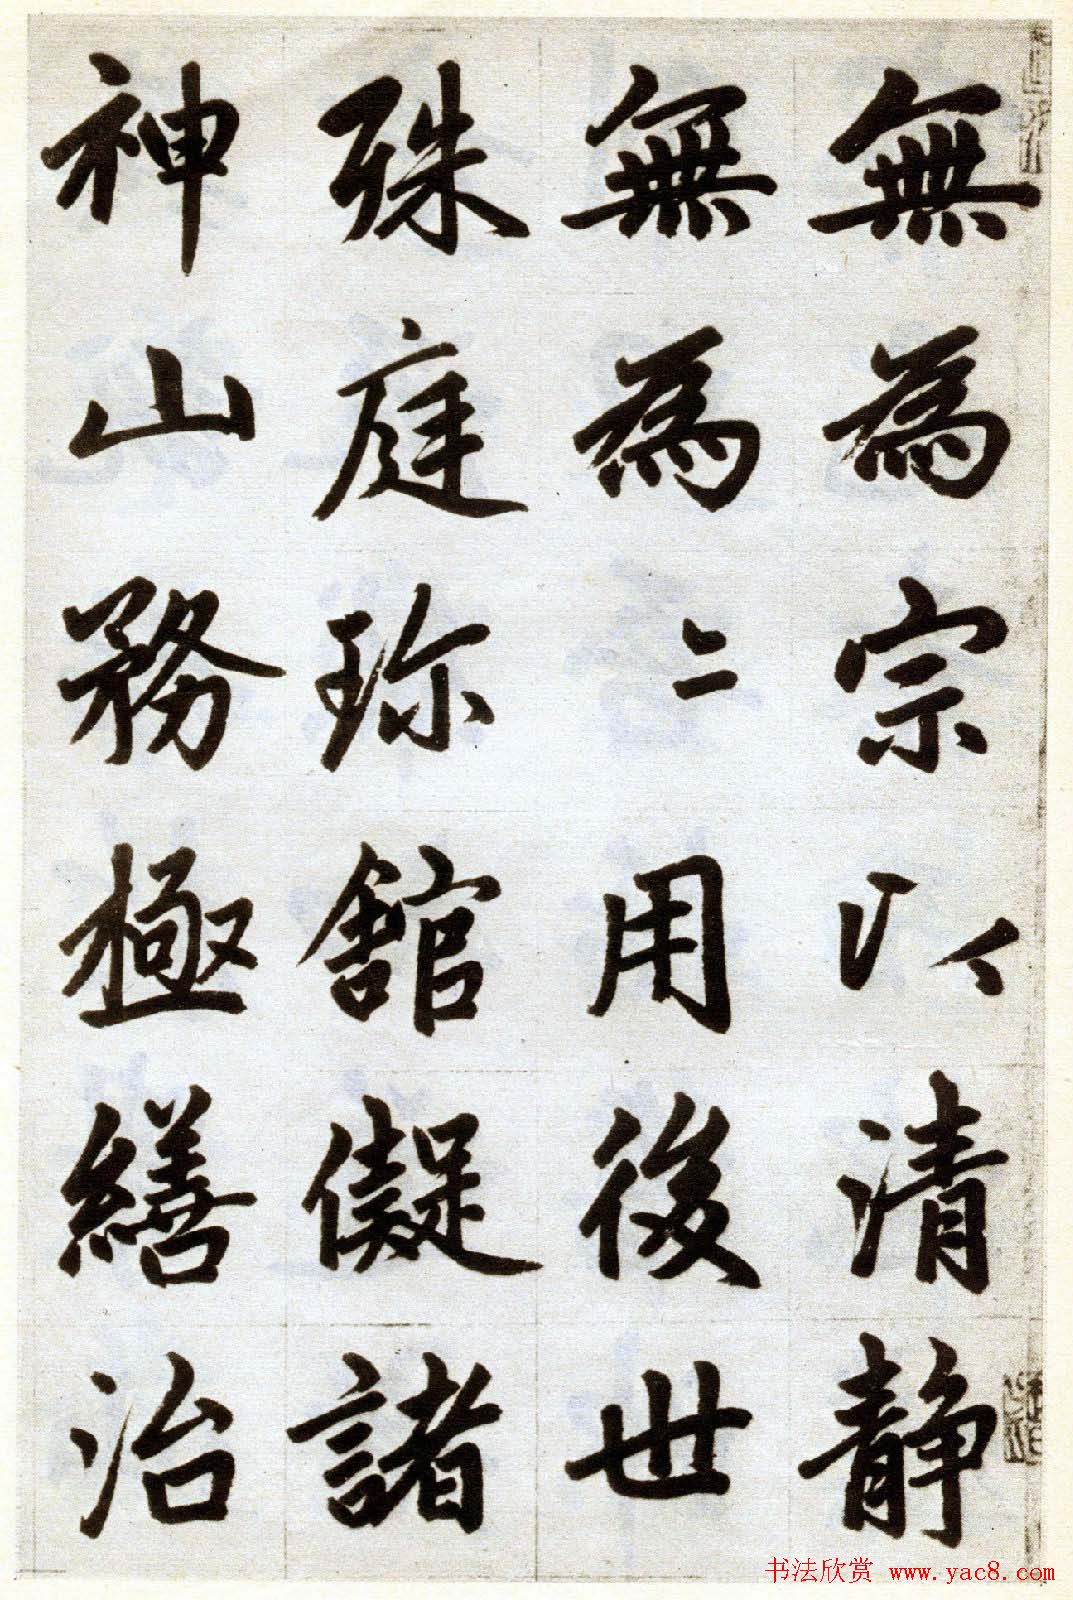 無為宗以清静
無為〻用後世
殊庭珎舘儗諸
神山務極繕治
书法欣赏 www.yac8.com